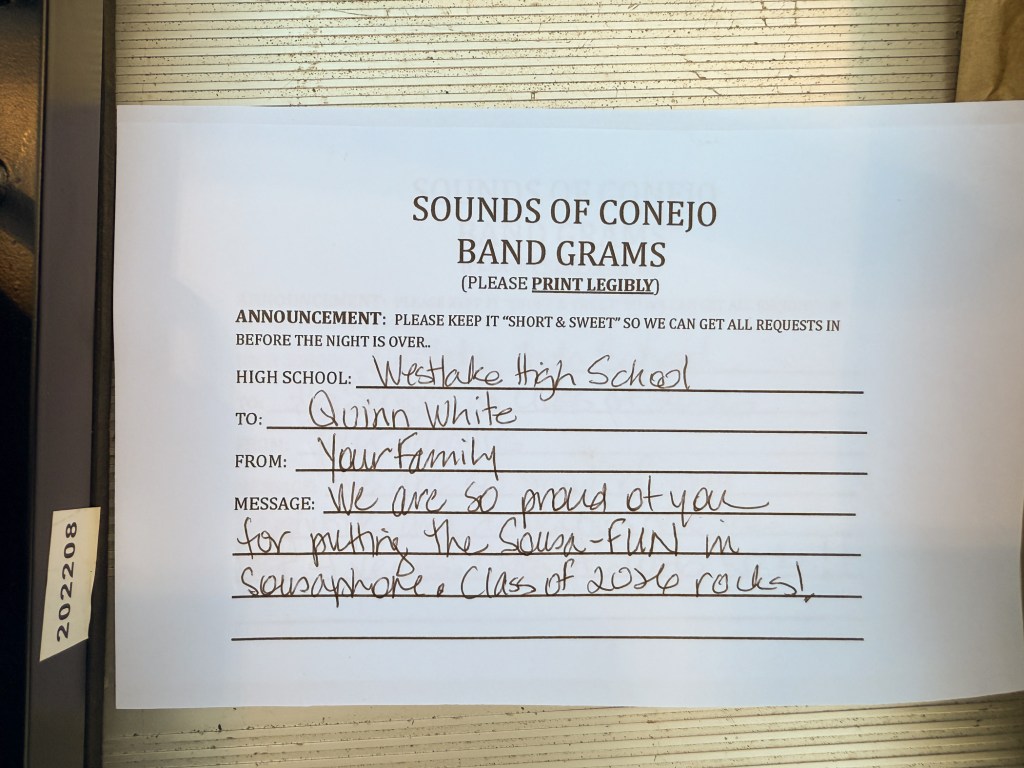 SOUNDS OF CONEJO
BAND GRAMS
(PLEASE PRINT LEGIBLY)
ANNOUNCEMENT: PLEASE KEEP IT "SHORT & SWEET" SO WE CAN GET ALL REQUESTS IN
BEFORE THE NIGHT IS OVER..
HIGH SCHOOL: Westlake High School
TO: Quinn White
FROM: Your Family
MESSAGE: We are so proud of you
for putting the Sousa-FUN in
Sousaphone. Class of 2026 rocks!
202208